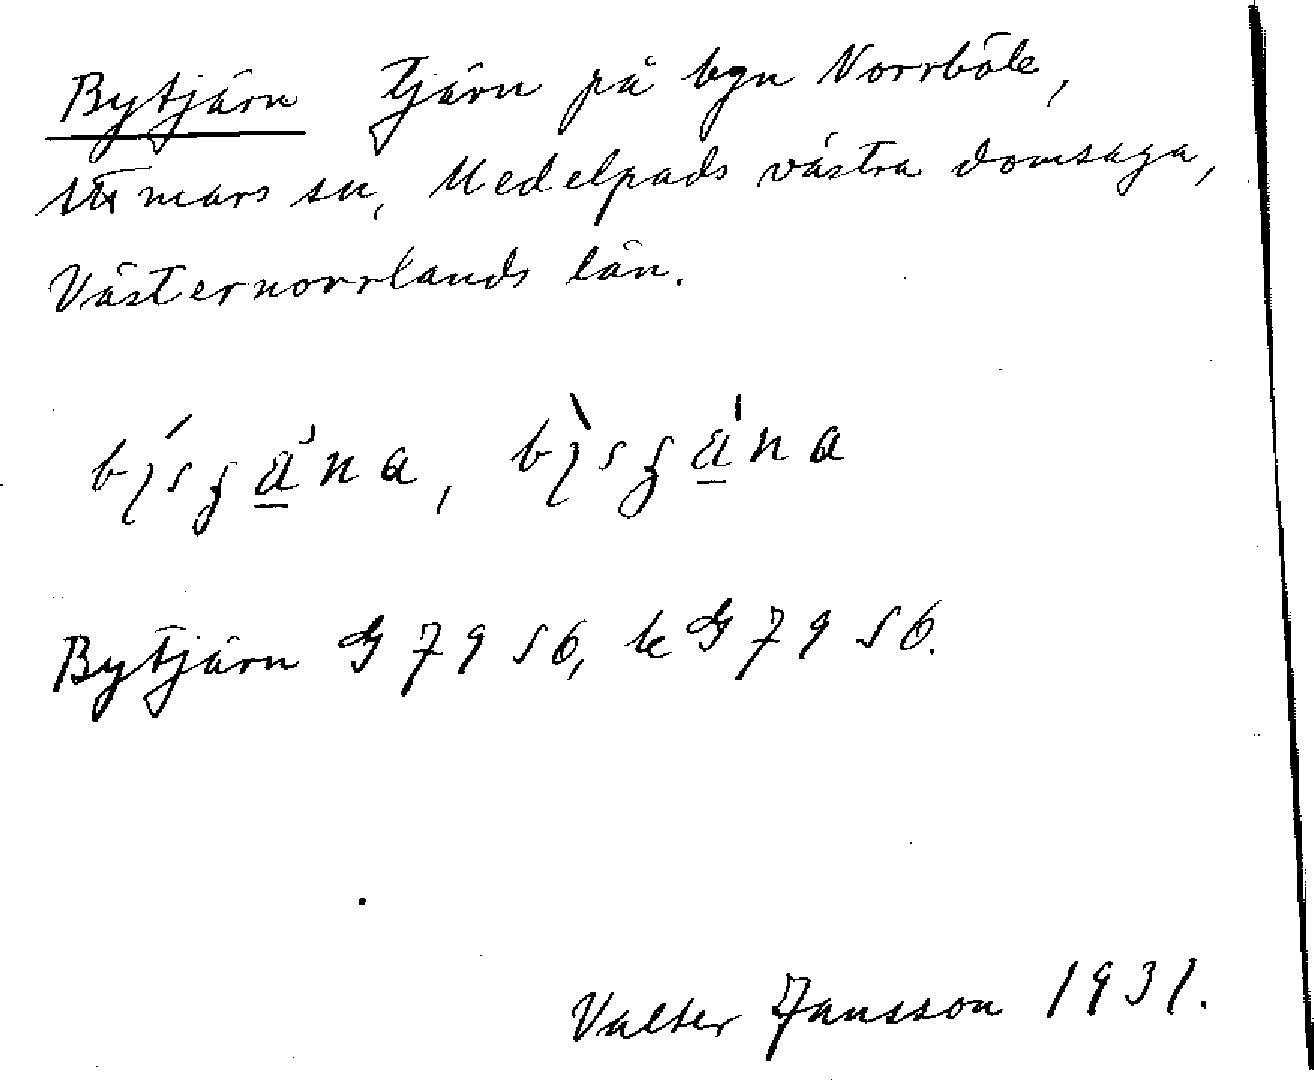 Bytjärn Tjärn på byn Norrböle,
Attmars sn, Medelpads västra domsaga,
Västernorrlands län.
Bytjärn G 7956, k G 7956.
Valter Jansson 1931.